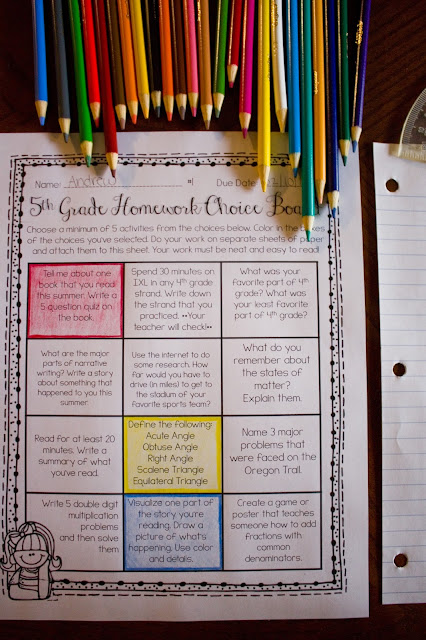 Name: Andrew #1 Due Date:
5th Grade Homework Choice
Choose a minimum of 5 activities from the choices below. Color in the boxes
of the choices you've selected. Do your work on separate sheets of paper
and attach them to this sheet. Your work must be neat and easy to read!
Tell me about one
book that you read
this summer. Write a
5 question quiz on
the book.
Spend 30 minutes on
IXL in any 4th grade
strand. Write down
the strand that you
practiced. **Your
teacher will check!**
What was your
favorite part of 4th
grade? What was
your least favorite
part of 4th grade?
What are the major
parts of narrative
writing? Write a story
about something that
happened to you this
summer.
Use the internet to do
some research. How
far would you have to
drive (in miles) to get to
the stadium of your
favorite sports team?
What do you
remember about
the states of
matter?
Explain them.
Read for at least 20
minutes. Write a
summary of what
you've read.
Define the following:
Acute Angle
Obtuse Angle
Right Angle
Scalene Triangle
Equilateral Triangle
Name 3 major
problems that
were faced on the
Oregon Trail.
Write 5 double digit
multiplication
problems
and then solve
them
Visualize one part of
the story you're
reading. Draw a
picture of what's
happening. Use color
and details.
Create a game or
poster that teaches
someone how to add
fractions with
common
denominators.